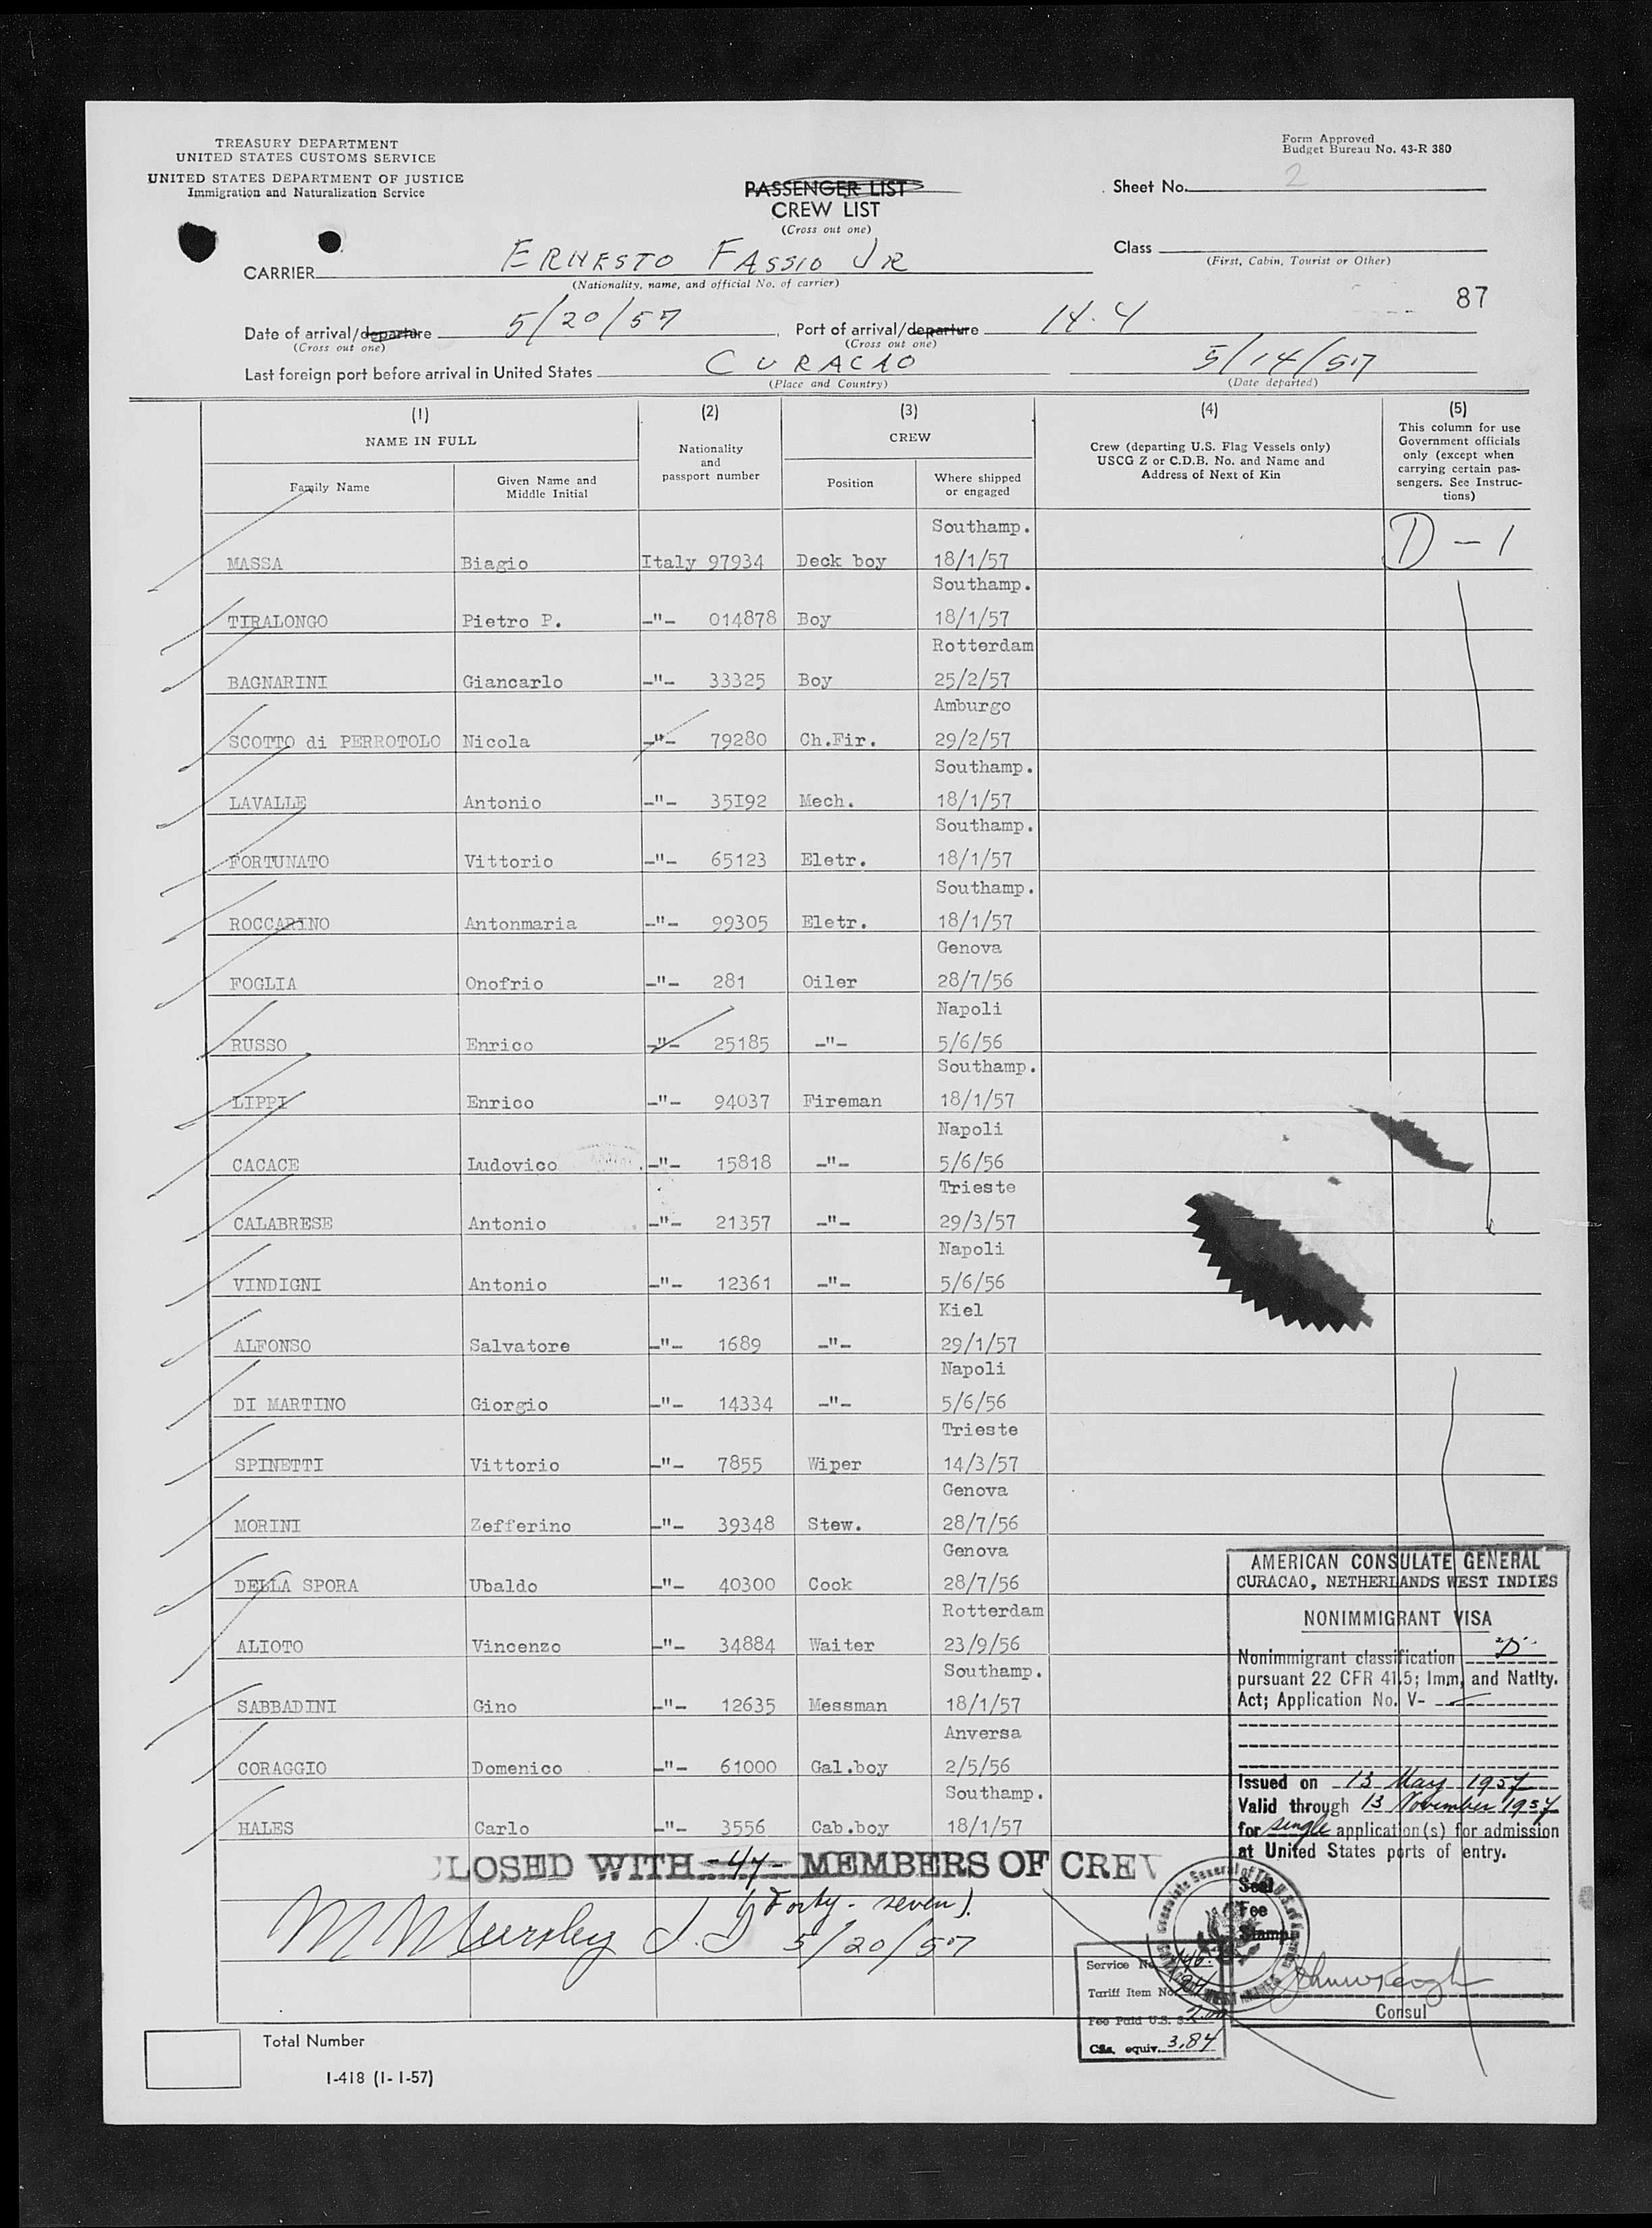 TREASURY DEPARTMENT
UNITED STATES CUSTOMS SERVICE
UNITED STATES DEPARTMENT OF JUSTICE
Immigration and Naturalization Service
Form Approved
Budget Bureau No. 43-R 380
PASSENGER LIST
CREW LIST
(Cross out one)
Sheet No. 2
Class
(First, Cabin, Tourist or Other)
CARRIER ERNESTO FASSIO JR
(Nationality, name, and official No. of carrier)
87
Date of arrival/departure 5/20/57 Port of arrival/departure N.Y
(Cross out one) (Cross out one)
Last foreign port before arrival in United States CURACAO 5/14/57
(Place and Country) (Date departed)
(1) (2) (3) (4) (5)
NAME IN FULL
Nationality and passport number
CREW
Crew (departing U.S. Flag Vessels only)
USCG Z or C.D.B. No. and Name and
Address of Next of Kin
This column for use
Government officials
only (except when
carrying certain pas-
sengers. See Instruc-
tions)
Family Name Given Name and Middle Initial Position Where shipped or engaged
Southamp.
MASSA Biagio Italy 97934 Deck boy 18/1/57 D-1
Southamp.
TIRALONGO Pietro P. -"- 014878 Boy 18/1/57
Rotterdam
BAGNARINI Giancarlo -"- 33325 Boy 25/2/57
Amburgo
SCOTTO di PERROTOLO Nicola -"- 79280 Ch.Fir. 29/2/57
Southamp.
LAVALLE Antonio -"- 35I92 Mech. 18/1/57
Southamp.
FORTUNATO Vittorio -"- 65123 Eletr. 18/1/57
Southamp.
ROCCARINO Antonmaria -"- 99305 Eletr. 18/1/57
Genova
FOGLIA Onofrio -"- 281 Oiler 28/7/56
Napoli
RUSSO Enrico -"- 25185 -"- 5/6/56
Southamp.
LIPPI Enrico -"- 94037 Fireman 18/1/57
Napoli
CACACE Ludovico -"- 15818 -"- 5/6/56
Trieste
CALABRESE Antonio -"- 21357 -"- 29/3/57
Napoli
VINDIGNI Antonio -"- 12361 -"- 5/6/56
Kiel
ALFONSO Salvatore -"- 1689 -"- 29/1/57
Napoli
DI MARTINO Giorgio -"- 14334 -"- 5/6/56
Trieste
SPINETTI Vittorio -"- 7855 Wiper 14/3/57
Genova
MORINI Zefferino -"- 39348 Stew. 28/7/56
Genova
DELLA SPORA Ubaldo -"- 40300 Cook 28/7/56
Rotterdam
ALIOTO Vincenzo -"- 34884 Waiter 23/9/56
Southamp.
SABBADINI Gino -"- 12635 Messman 18/1/57
Anversa
CORAGGIO Domenico -"- 61000 Gal.boy 2/5/56
Southamp.
HALES Carlo -"- 3556 Cab.boy 18/1/57
AMERICAN CONSULATE GENERAL
CURACAO, NETHERLANDS WEST INDIES
NONIMMIGRANT VISA
Nonimmigrant classification "D"
pursuant 22 CFR 41.5; Imm. and Natlty.
Act; Application No. V-
Issued on 13 May 1957
Valid through 13 November 1957
for single application(s) for admission
at United States ports of entry.
Seal
Fee
Stamp
Consul
CLOSED WITH -47- MEMBERS OF CREW
(Forty-seven).
M Murphy 5/20/57
Service No.
Tariff Item No.
Fee Paid U.S. $
C&s. equiv. 3.84
Total Number
I-418 (1-1-57)